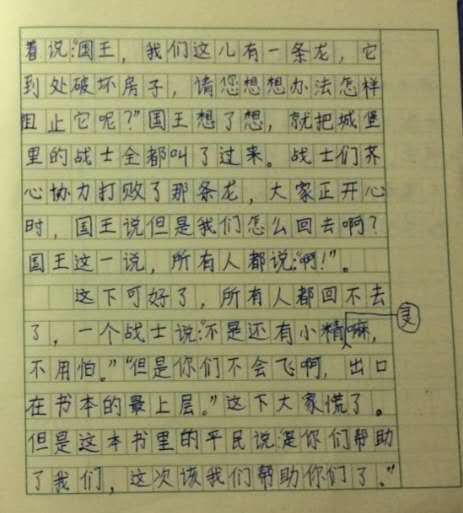 着说:"国王，我们这儿有一条龙，它
到处破坏房子，请您想想办法怎样
阻止它呢？"国王想了想，就把城堡
里的战士全都叫了过来。战士们齐
心协力打败了那条龙，大家正开心
时，国王说但是我们怎么回去啊？
国王这一说，所有人都说:"啊！"。
这下可好了，所有人都回不去
了，一个战士说:"不是还有小精灵嘛，
不用怕。""但是你们不会飞啊，出口
在书本的最上层。"这下大家慌了。
但是这本书里的平民说:"是你们帮助
了我们，这次该我们帮助你们了。"